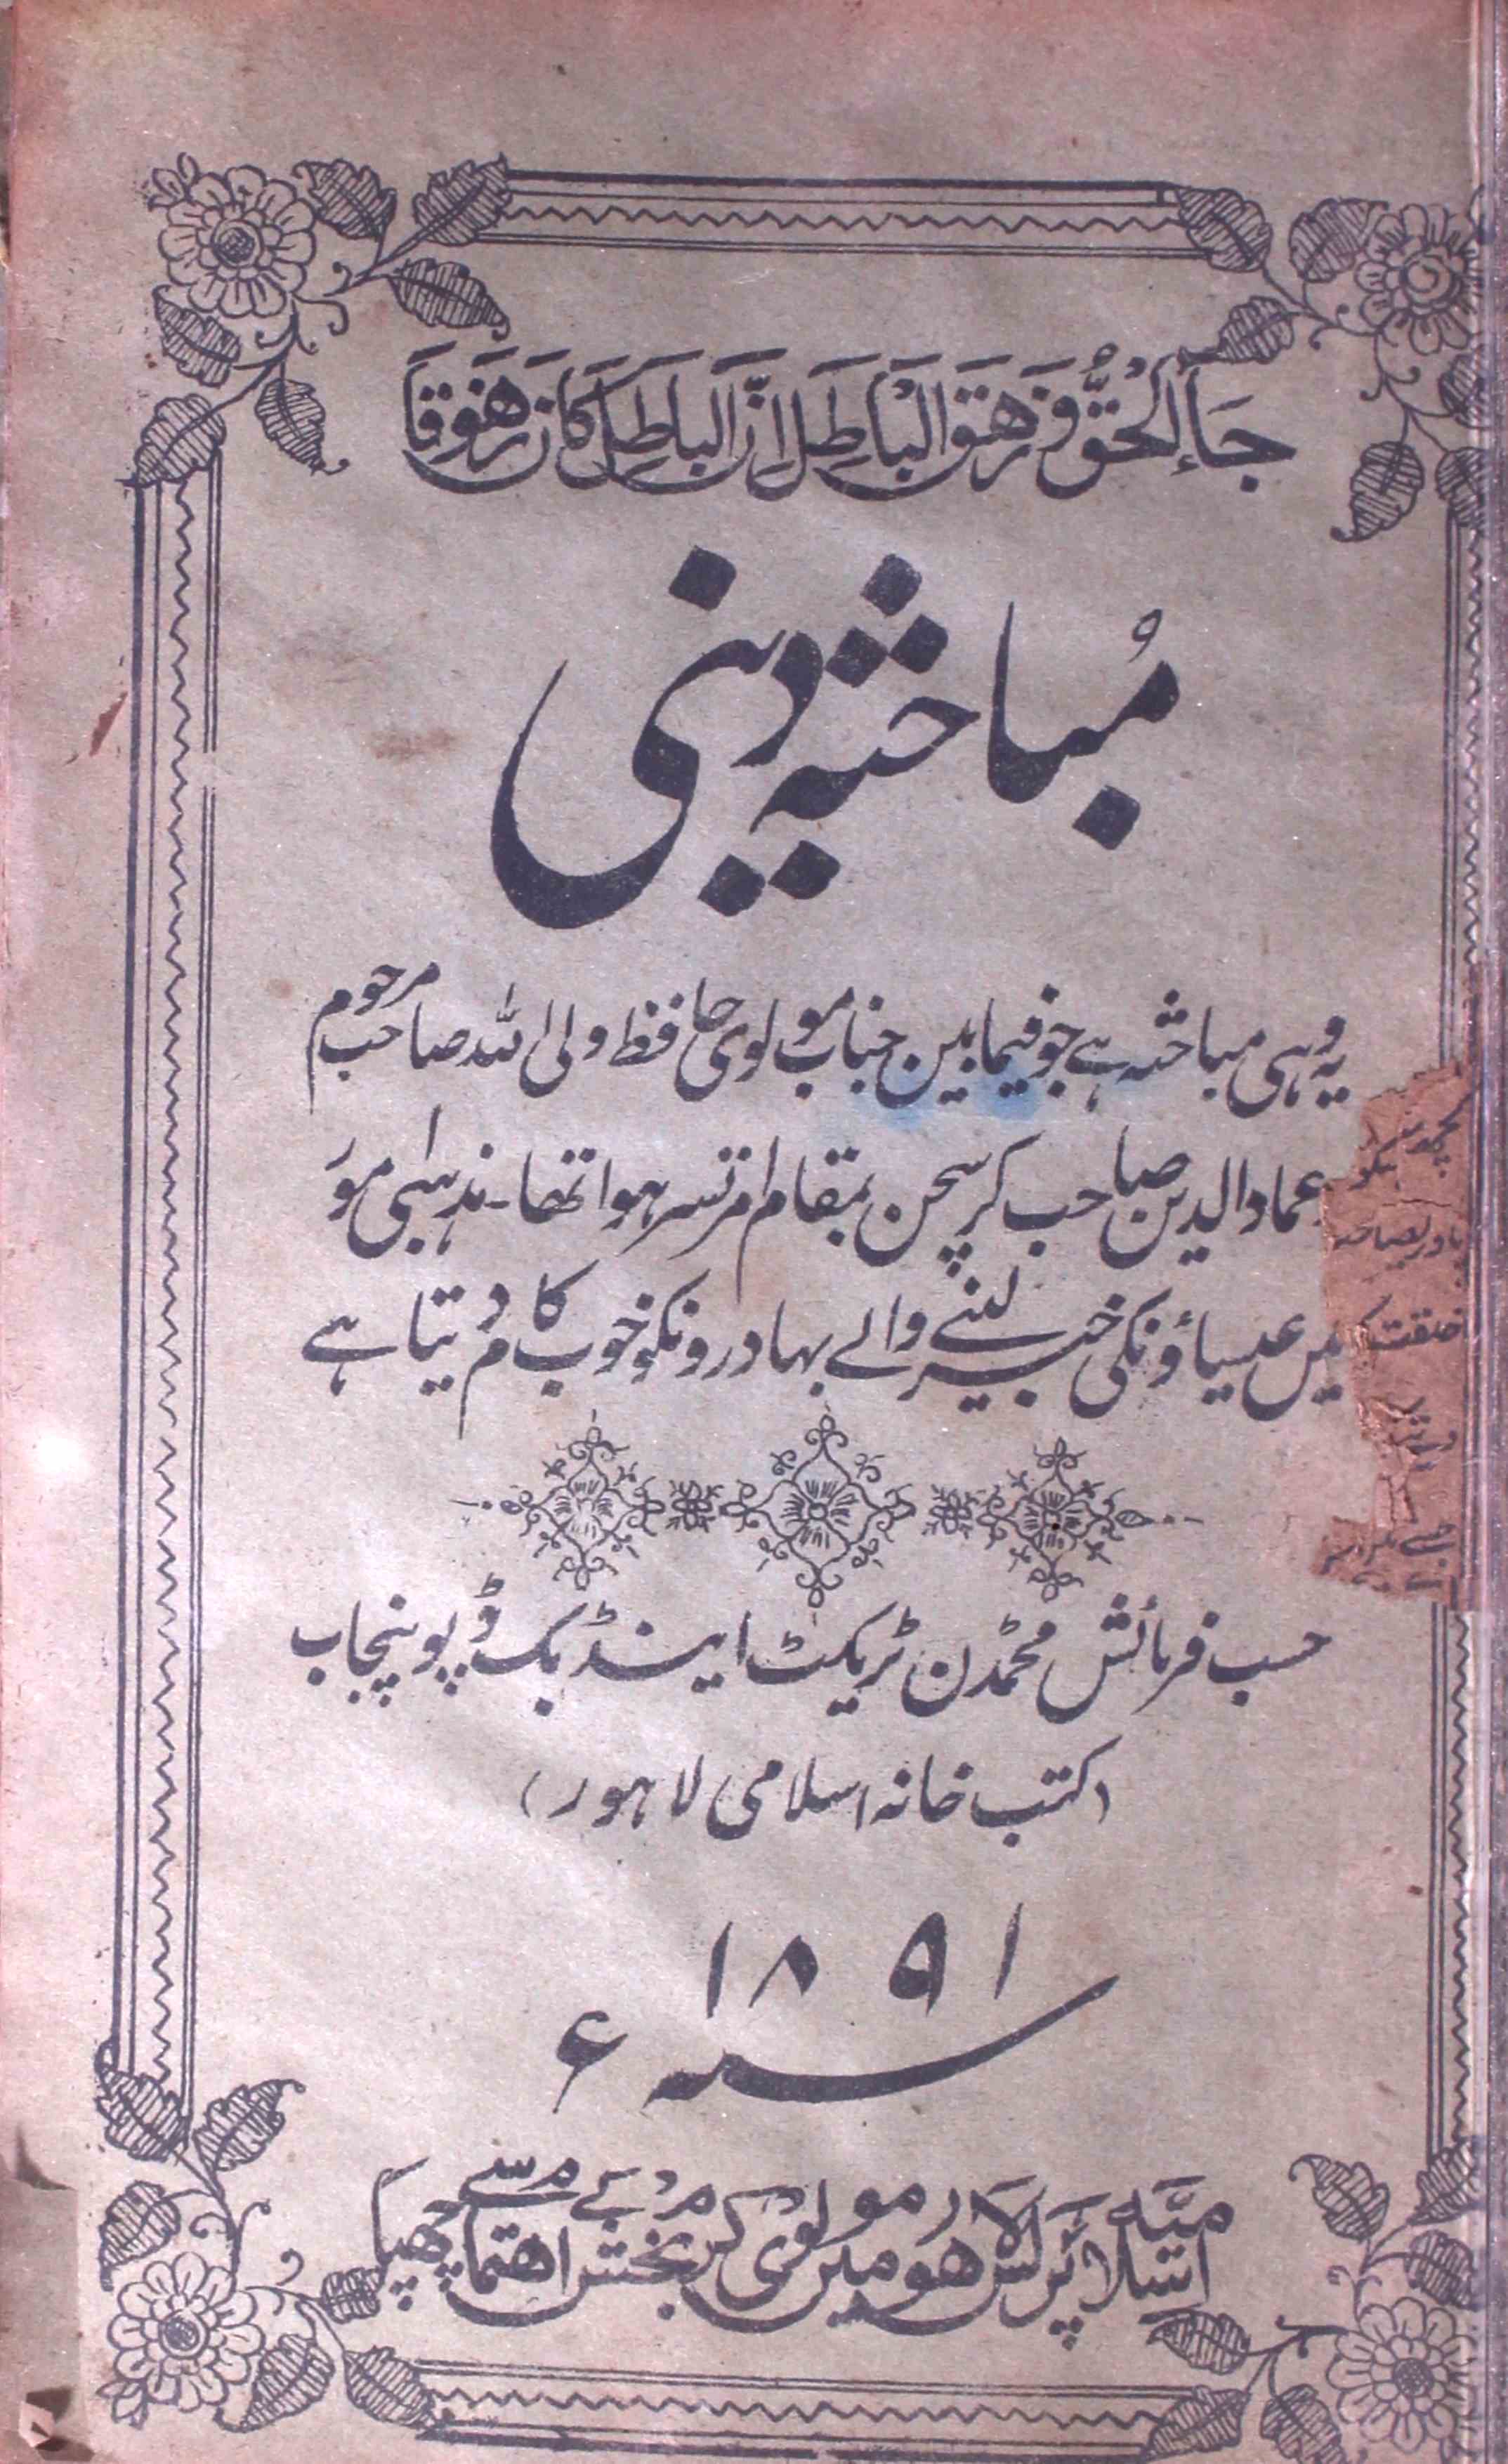 جَاءَ الْحَقُّ وَزَهَقَ الْبَاطِلُ اِنَّ الْبَاطِلَ كَانَ زَهُوقًا
مُباحثہ دینی
یہ وہی مباحثہ ہے جو فیمابین جناب مولوی حافظ ولی اللہ صاحب مرحوم
عماد الدین صاحب کرسچن بمقام امرتسر ہوا تھا۔ مذہبی امور
میں عیسائونکی خبر لینے والے بہادرونکو خوب کام دیتا ہے
حسب فرمائش محمڈن ٹریکٹ اینڈ بک ڈپو پنجاب
(کتب خانہ اسلامی لاہور)
۱۸۹۱
سنہ ء
اسلامیہ پریس لاہور میں مولوی کریم بخش کے اہتمام سے چھپا